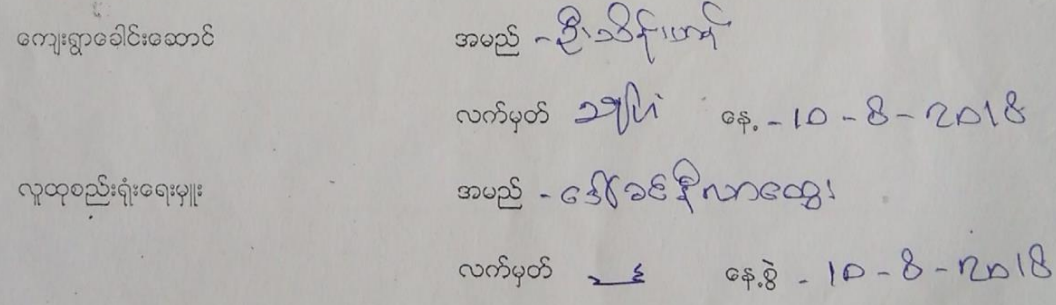 ကျေးရွာခေါင်းဆောင် အမည် - ဦးသိန်းဟန်
လက်မှတ် နေ့. - 10 - 8 - 2018
လူထုစည်းရုံးရေးမှူး အမည် - ဒေါ်ခင်နီလာထွေး
လက်မှတ် နေ့.စွဲ - 10 - 8 - 2018